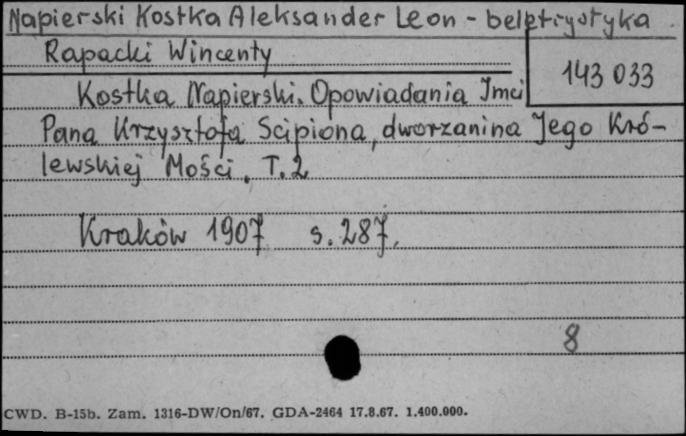 Napierski Kostka Aleksander Leon - beletrystyka
Rapacki Wincenty
143 033
Kostka Napierski. Opowiadania Imci
Pana Krzysztofa Scipiona, dworzanina Jego Kró-
lewskiej Mości. T. 2
Kraków 1907 s. 287.
8
CWD. B-15b. Zam. 1316-DW/On/67. GDA-2464 17.8.67. 1.400.000.